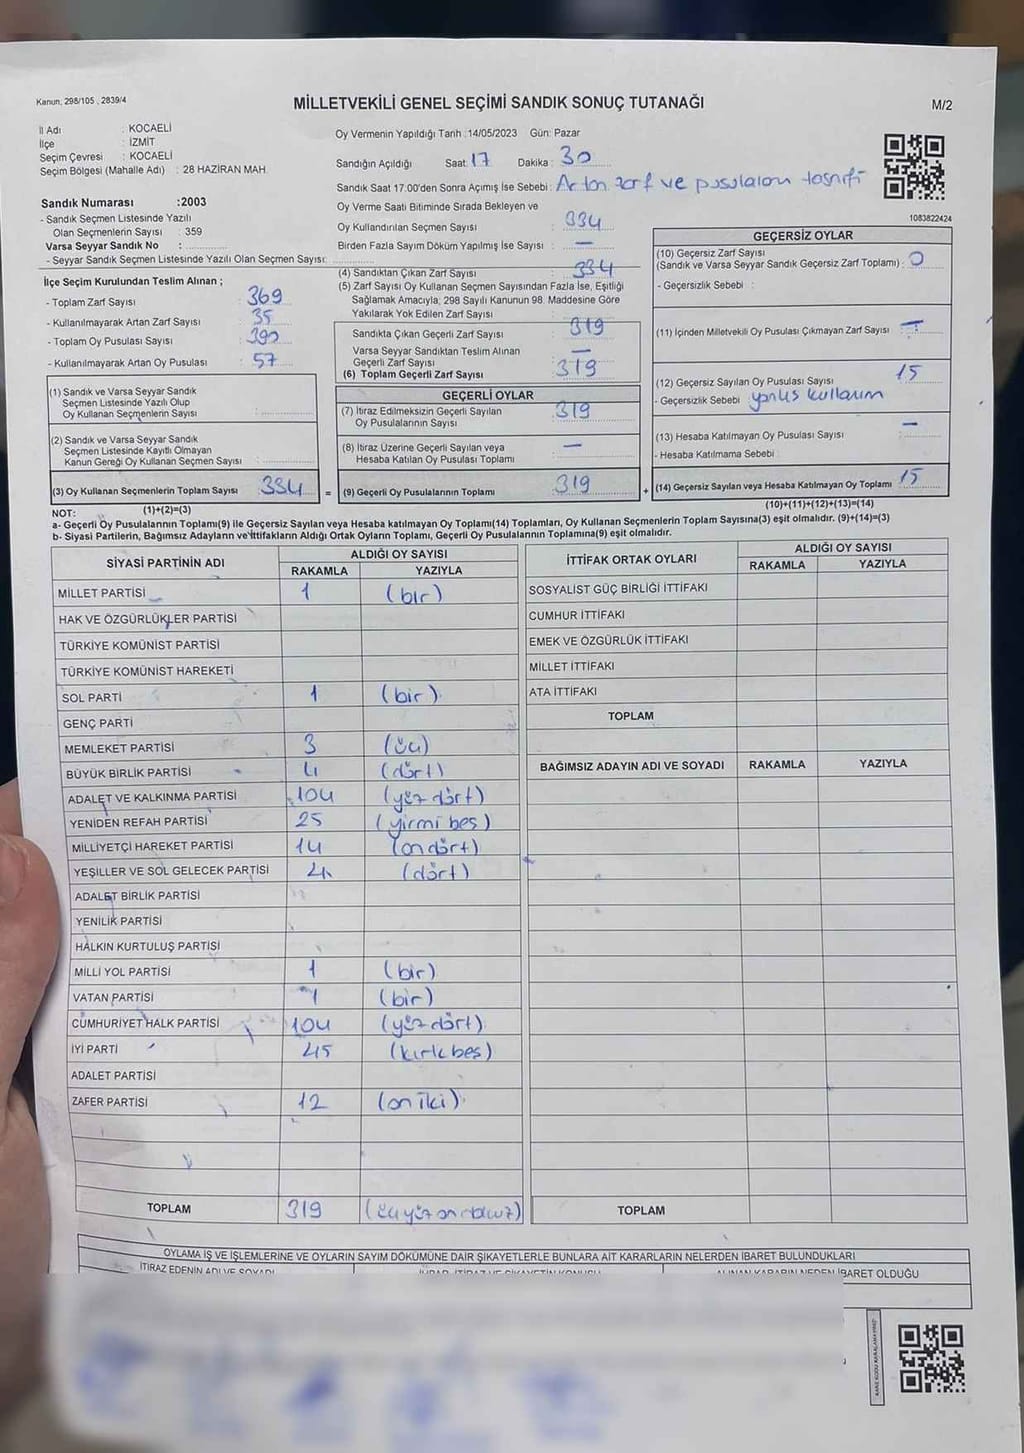 Kanun, 298/105 , 2839/4
MİLLETVEKİLİ GENEL SEÇİMİ SANDIK SONUÇ TUTANAĞI
M/2
İl Adı : KOCAELİ
İlçe : İZMİT
Seçim Çevresi : KOCAELİ
Seçim Bölgesi (Mahalle Adı) : 28 HAZİRAN MAH.
Sandık Numarası :2003
- Sandık Seçmen Listesinde Yazılı
Olan Seçmenlerin Sayısı : 359
Varsa Seyyar Sandık No :
- Seyyar Sandık Seçmen Listesinde Yazılı Olan Seçmen Sayısı:
Oy Vermenin Yapıldığı Tarih :14/05/2023 Gün: Pazar
Sandığın Açıldığı Saat: 17 Dakika : 30
Sandık Saat 17.00'den Sonra Açımış İse Sebebi : Artan zarf ve pusulaların tasnifi
Oy Verme Saati Bitiminde Sırada Bekleyen ve
Oy Kullandırılan Seçmen Sayısı : 334
Birden Fazla Sayım Döküm Yapılmış İse Sayısı : —
1083822424
İlçe Seçim Kurulundan Teslim Alınan ;
- Toplam Zarf Sayısı : 369
- Kullanılmayarak Artan Zarf Sayısı : 35
- Toplam Oy Pusulası Sayısı :
- Kullanılmayarak Artan Oy Pusulası : 57
(1) Sandık ve Varsa Seyyar Sandık
Seçmen Listesinde Yazılı Olup
Oy Kullanan Seçmenlerin Sayısı :
(2) Sandık ve Varsa Seyyar Sandık
Seçmen Listesinde Kayıtlı Olmayan
Kanun Gereği Oy Kullanan Seçmen Sayısı :
(3) Oy Kullanan Seçmenlerin Toplam Sayısı : 334 =
(4) Sandıktan Çıkan Zarf Sayısı : 334
(5) Zarf Sayısı Oy Kullanan Seçmen Sayısından Fazla İse, Eşitliği
Sağlamak Amacıyla, 298 Sayılı Kanunun 98. Maddesine Göre
Yakılarak Yok Edilen Zarf Sayısı :
Sandıkta Çıkan Geçerli Zarf Sayısı : 319
Varsa Seyyar Sandıktan Teslim Alınan
Geçerli Zarf Sayısı : —
(6) Toplam Geçerli Zarf Sayısı : 319
GEÇERLİ OYLAR
(7) İtiraz Edilmeksizin Geçerli Sayılan
Oy Pusulalarının Sayısı : 319
(8) İtiraz Üzerine Geçerli Sayılan veya
Hesaba Katılan Oy Pusulası Toplamı : —
(9) Geçerli Oy Pusulalarının Toplamı : 319 +
GEÇERSİZ OYLAR
(10) Geçersiz Zarf Sayısı
(Sandık ve Varsa Seyyar Sandık Geçersiz Zarf Toplamı) : 0
- Geçersizlik Sebebi :
(11) İçinden Milletvekili Oy Pusulası Çıkmayan Zarf Sayısı : —
(12) Geçersiz Sayılan Oy Pusulası Sayısı : 15
- Geçersizlik Sebebi : yanlış kullanım
(13) Hesaba Katılmayan Oy Pusulası Sayısı : —
- Hesaba Katılmama Sebebi :
(14) Geçersiz Sayılan veya Hesaba Katılmayan Oy Toplamı : 15
NOT: (1)+(2)=(3)
(10)+(11)+(12)+(13)=(14)
a- Geçerli Oy Pusulalarının Toplamı(9) ile Geçersiz Sayılan veya Hesaba katılmayan Oy Toplamı(14) Toplamları, Oy Kullanan Seçmenlerin Toplam Sayısına(3) eşit olmalıdır. (9)+(14)=(3)
b- Siyasi Partilerin, Bağımsız Adayların ve İttifakların Aldığı Ortak Oyların Toplamı, Geçerli Oy Pusulalarının Toplamına(9) eşit olmalıdır.
SİYASİ PARTİNİN ADI
ALDIĞI OY SAYISI
RAKAMLA YAZIYLA
MİLLET PARTİSİ 1 (bir)
HAK VE ÖZGÜRLÜKLER PARTİSİ
TÜRKİYE KOMÜNİST PARTİSİ
TÜRKİYE KOMÜNİST HAREKETİ
SOL PARTİ 1 (bir)
GENÇ PARTİ
MEMLEKET PARTİSİ 3 (üç)
BÜYÜK BİRLİK PARTİSİ 4 (dört)
ADALET VE KALKINMA PARTİSİ 104 (yüz dört)
YENİDEN REFAH PARTİSİ 25 (yirmi beş)
MİLLİYETÇİ HAREKET PARTİSİ 14 (on dört)
YEŞİLLER VE SOL GELECEK PARTİSİ 4 (dört)
ADALET BİRLİK PARTİSİ
YENİLİK PARTİSİ
HALKIN KURTULUŞ PARTİSİ
MİLLİ YOL PARTİSİ 1 (bir)
VATAN PARTİSİ 1 (bir)
CUMHURİYET HALK PARTİSİ 104 (yüz dört)
İYİ PARTİ 45 (kırk beş)
ADALET PARTİSİ
ZAFER PARTİSİ 12 (on iki)
TOPLAM 319
İTTİFAK ORTAK OYLARI
ALDIĞI OY SAYISI
RAKAMLA YAZIYLA
SOSYALİST GÜÇ BİRLİĞİ İTTİFAKI
CUMHUR İTTİFAKI
EMEK VE ÖZGÜRLÜK İTTİFAKI
MİLLET İTTİFAKI
ATA İTTİFAKI
TOPLAM
BAĞIMSIZ ADAYIN ADI VE SOYADI RAKAMLA YAZIYLA
TOPLAM
OYLAMA İŞ VE İŞLEMLERİNE VE OYLARIN SAYIM DÖKÜMÜNE DAİR ŞİKAYETLERLE BUNLARA AİT KARARLARIN NELERDEN İBARET BULUNDUKLARI
İTİRAZ EDENİN ADI VE SOYADI
ALINAN KARARIN NEDEN İBARET OLDUĞU